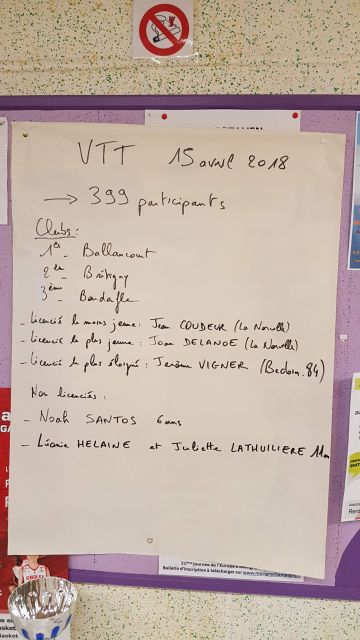 VTT 15 avril 2018
→ 399 participants
Clubs :
1er - Ballancourt
2ème - Brétigny
3ème - Bardafle
- Licencié le moins jeune : Jean COUDEUR (La Norville)
- Licencié le plus jeune : Joan DELANOE (La Norville)
- Licencié le plus éloigné : Jérôme VIGNER (Bedoin. 84)
Non licenciés :
- Noah SANTOS 6 ans
- Léonie HELAINE et Juliette LATHUILIERE 11 ans
Bulletin d'inscription à télécharger sur